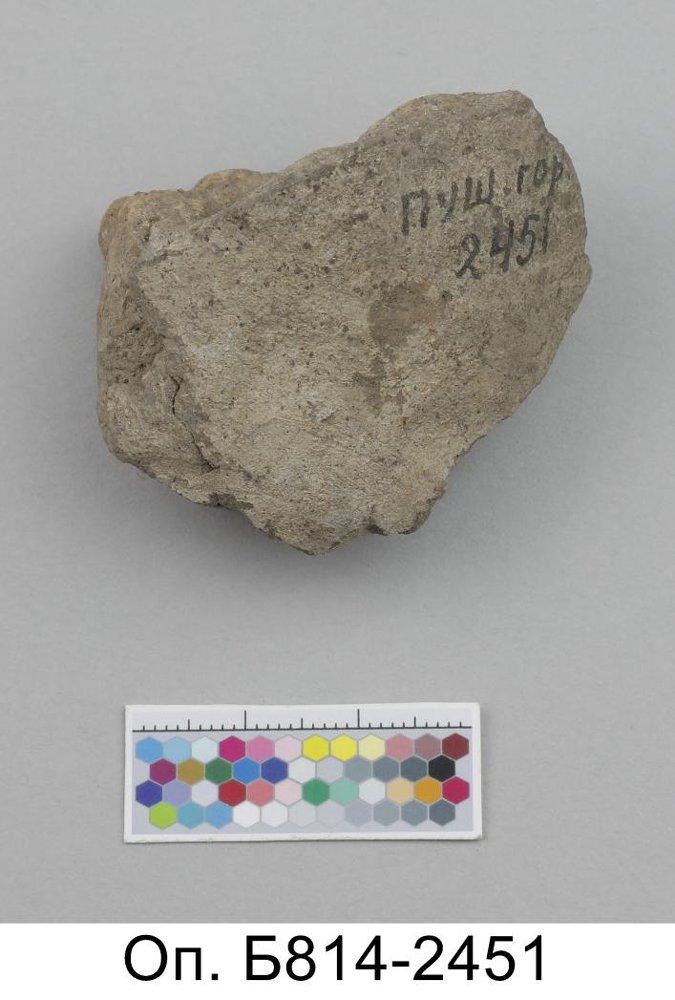 пуш.гор
2451
Оп. Б814-2451